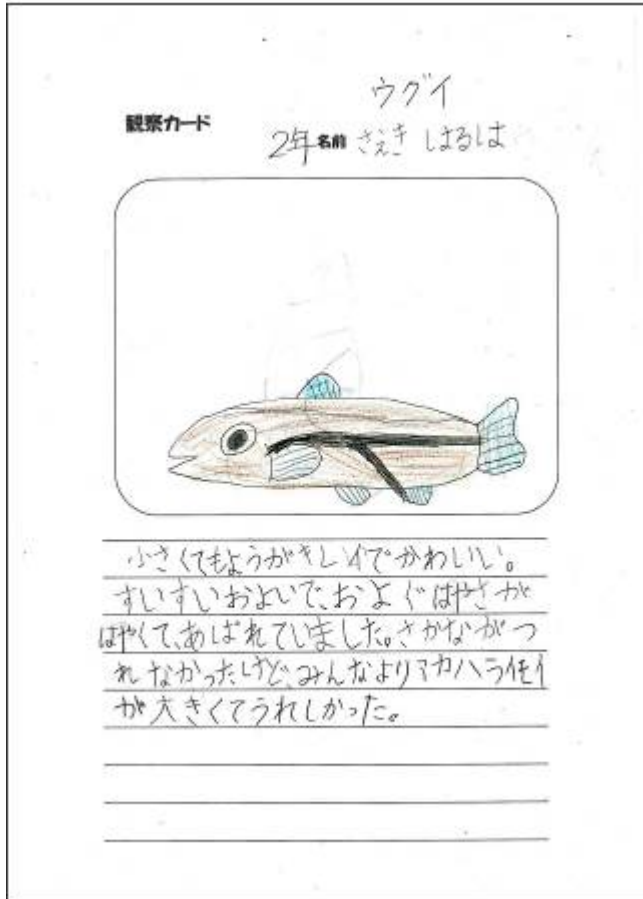 ウグイ
観察カード
2年 名前 さえき はるは
小さくてもようがキレイでかわいい。
すいすいおよいで、およぐはやさが
はやくて、あばれていました。さかながつ
れなかったけど、みんなより
が大きくてうれしかった。